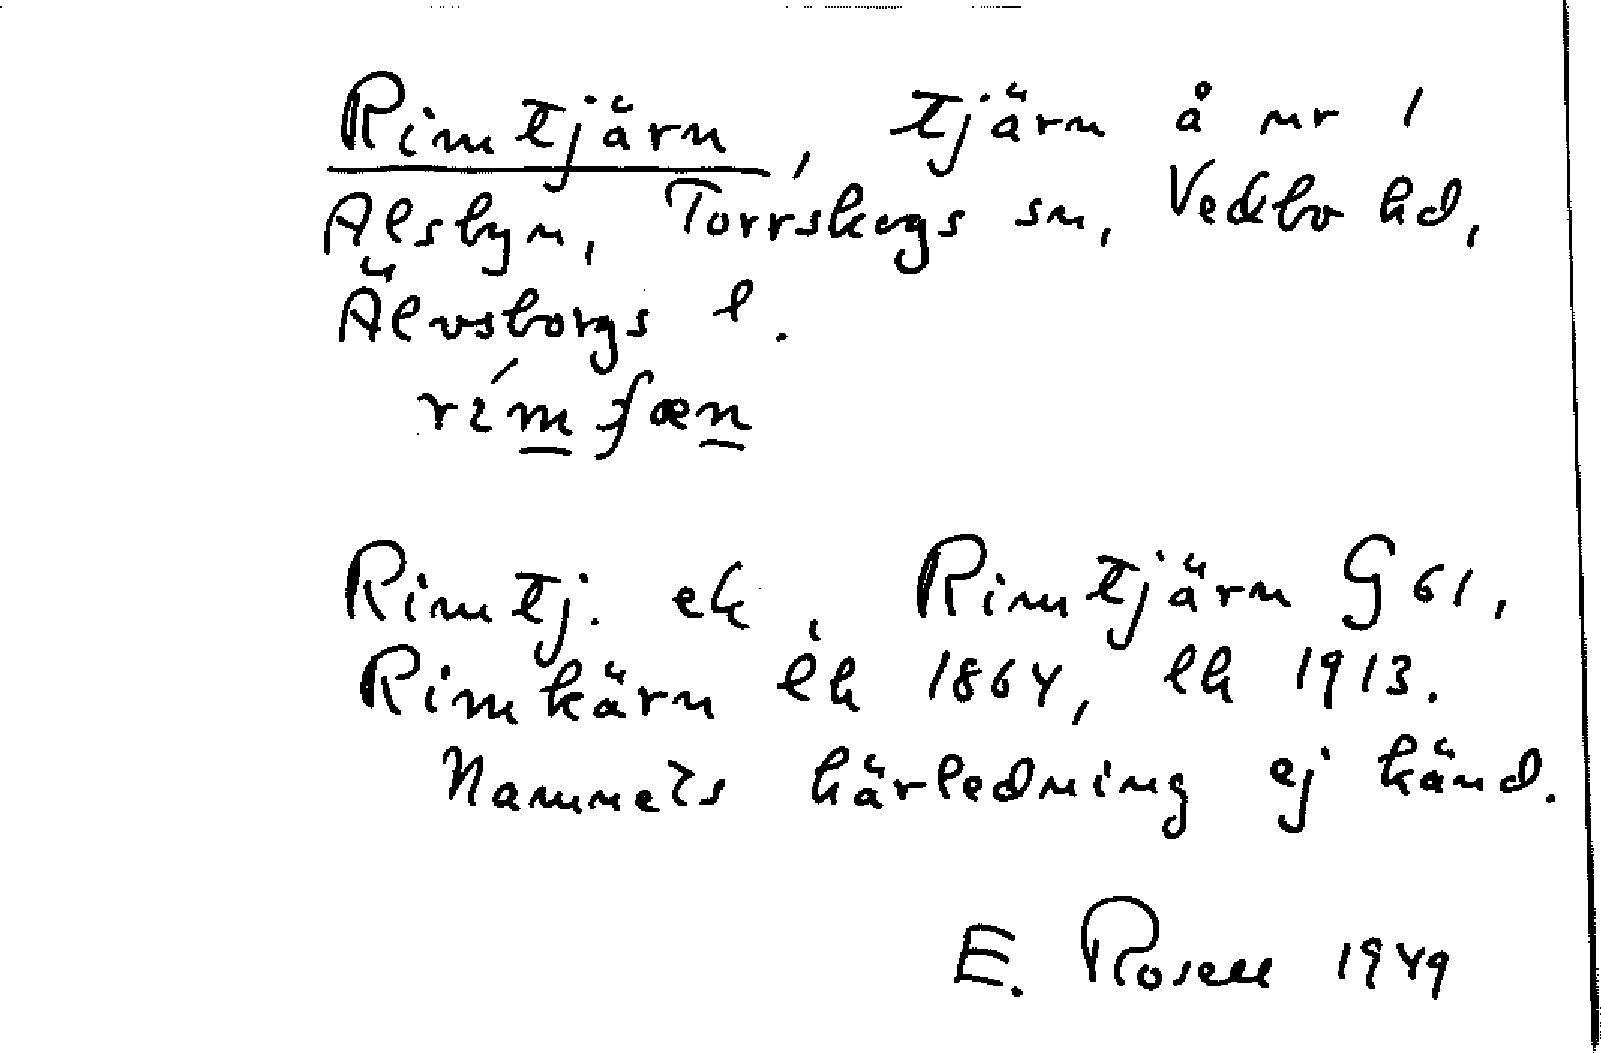 Rimtjärn, tjärn å nr 1
Älsbyn, Torrskogs sn, Vedbo hd,
Älvsborgs l.
Rimtj. ek, Rimtjärn G 61,
Rimkärn lh 1864, lh 1913.
Namnets härledning ej känd.
E. Rosell 1949